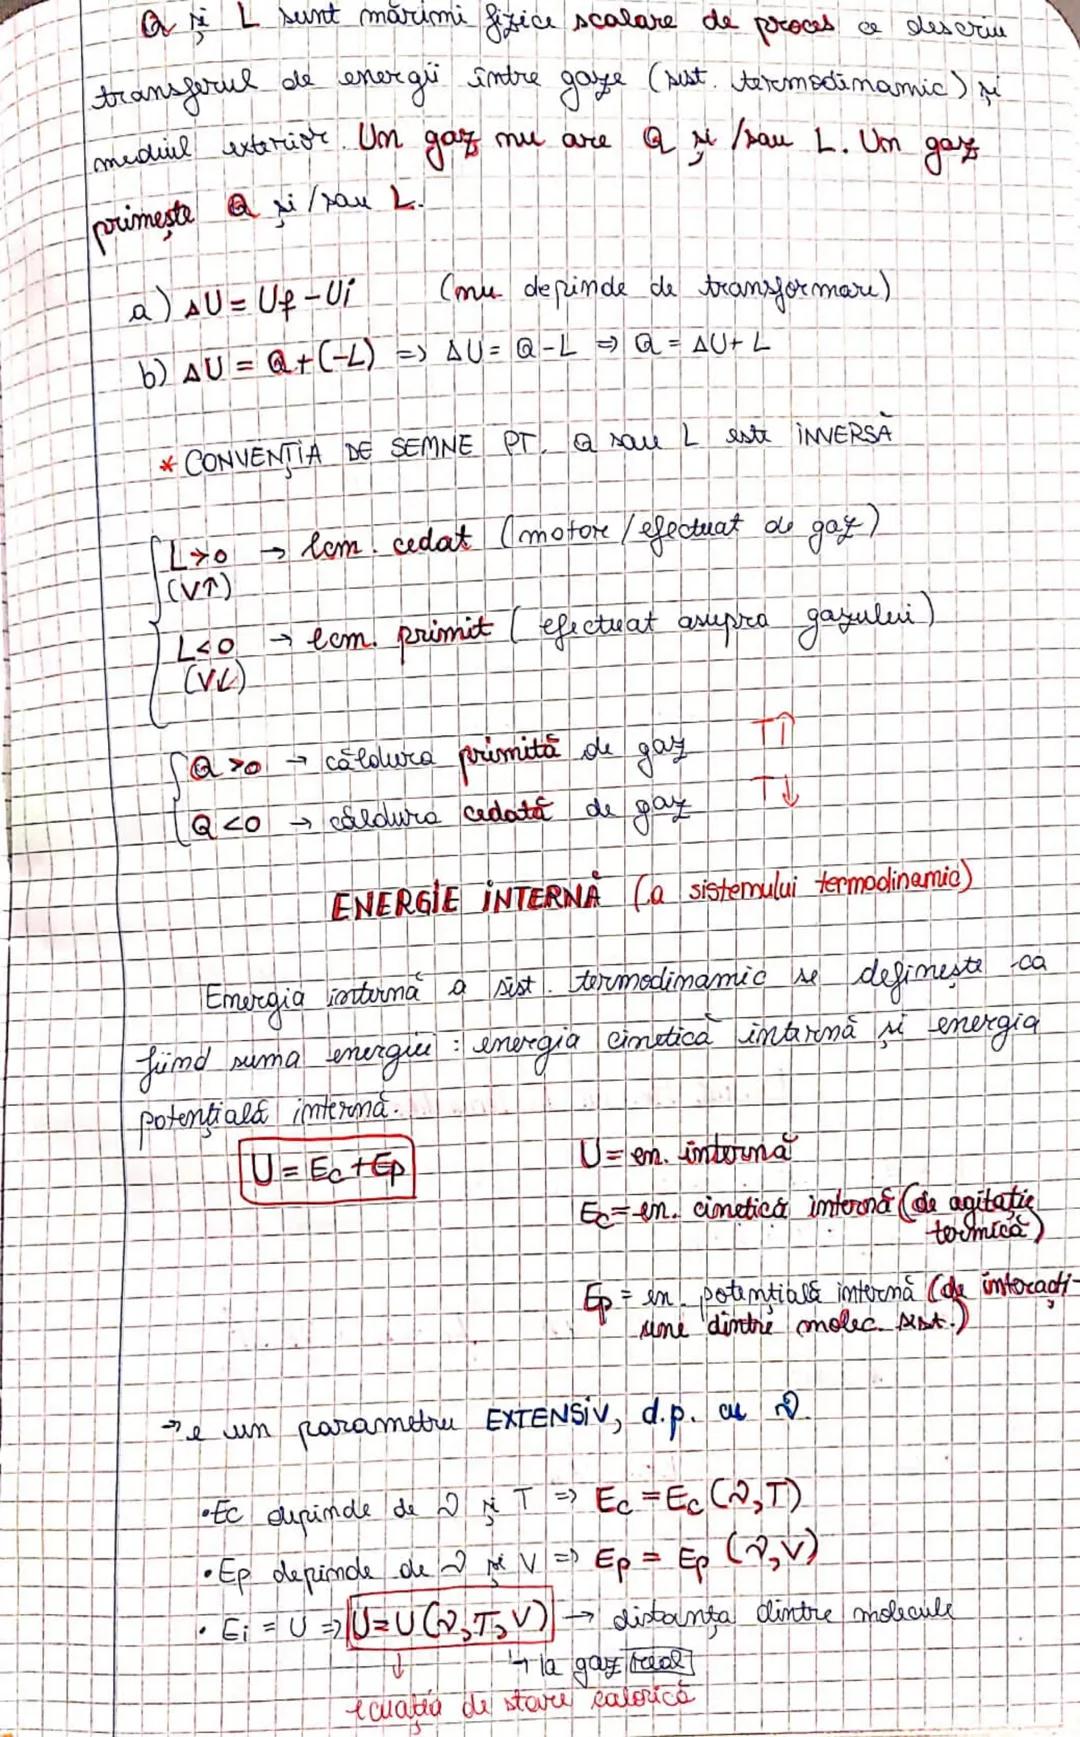 Q și L sunt mărimi fizice scalare de proces ce descriu
transferul de energii între gaze (sist. termodinamic) și
mediul exterior. Un gaz nu are Q și /sau L. Un gaz
primește Q și /sau L.
a) ΔU = Uf - Ui (nu depinde de transformare)
b) ΔU = Q + (-L) => ΔU = Q - L => Q = ΔU + L
* CONVENȚIA DE SEMNE PT. Q sau L este INVERSĂ
L>0 → lcm. cedat (motore / efectuat de gaz)
(V↑)
L<0 → lcm. primit (efectuat asupra gazului)
(V↓)
Q>0 → căldura primită de gaz T↑
Q<0 → căldura cedată de gaz T↓
ENERGIE INTERNĂ (a sistemului termodinamic)
Energia internă a sist. termodinamic se definește ca
fiind suma energiei : energia cinetică internă și energia
potențială internă.
U = Ec + Ep U = en. internă
Ec = en. cinetică internă (de agitație
termică)
Ep = en. potențială internă (de interacți-
une dintre molec. sist.)
→ e un parametru EXTENSIV, d.p. cu ν.
• Ec depinde de ν și T => Ec = Ec (ν, T)
• Ep depinde de ν și V => Ep = Ep (ν, V)
• Ei = U => U = U (ν, T, V) → distanța dintre molecule
↓ ↳ la gaz real
ecuația de stare calorică